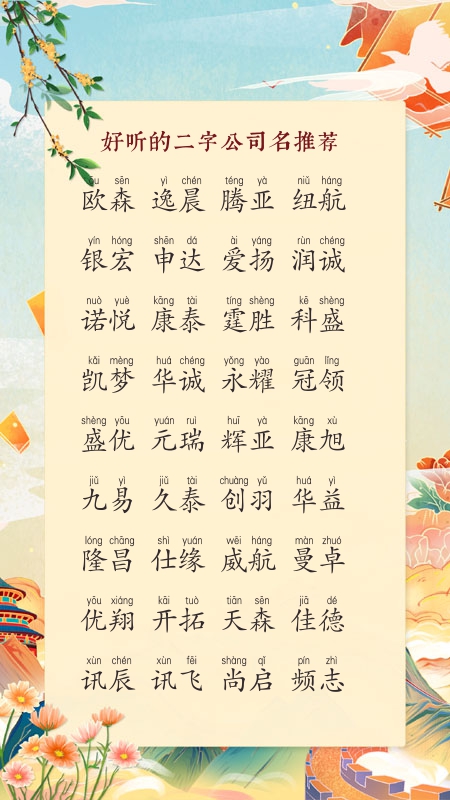 好听的二字公司名推荐
ōu sēn yì chén téng yà niǔ háng
欧森 逸晨 腾亚 纽航
yín hóng shēn dá ài yáng rùn chéng
银宏 申达 爱扬 润诚
nuò yuè kāng tài tíng shèng kē shèng
诺悦 康泰 霆胜 科盛
kǎi mèng huá chéng yǒng yào guān lǐng
凯梦 华诚 永耀 冠领
shèng yōu yuán ruì huī yà kāng xù
盛优 元瑞 辉亚 康旭
jiǔ yì jiǔ tài chuàng yǔ huá yì
九易 久泰 创羽 华益
lóng chāng shì yuán wēi háng màn zhuó
隆昌 仕缘 威航 曼卓
yōu xiáng kāi tuò tiān sēn jiā dé
优翔 开拓 天森 佳德
xùn chén xùn fēi shàng qǐ pín zhì
讯辰 讯飞 尚启 频志